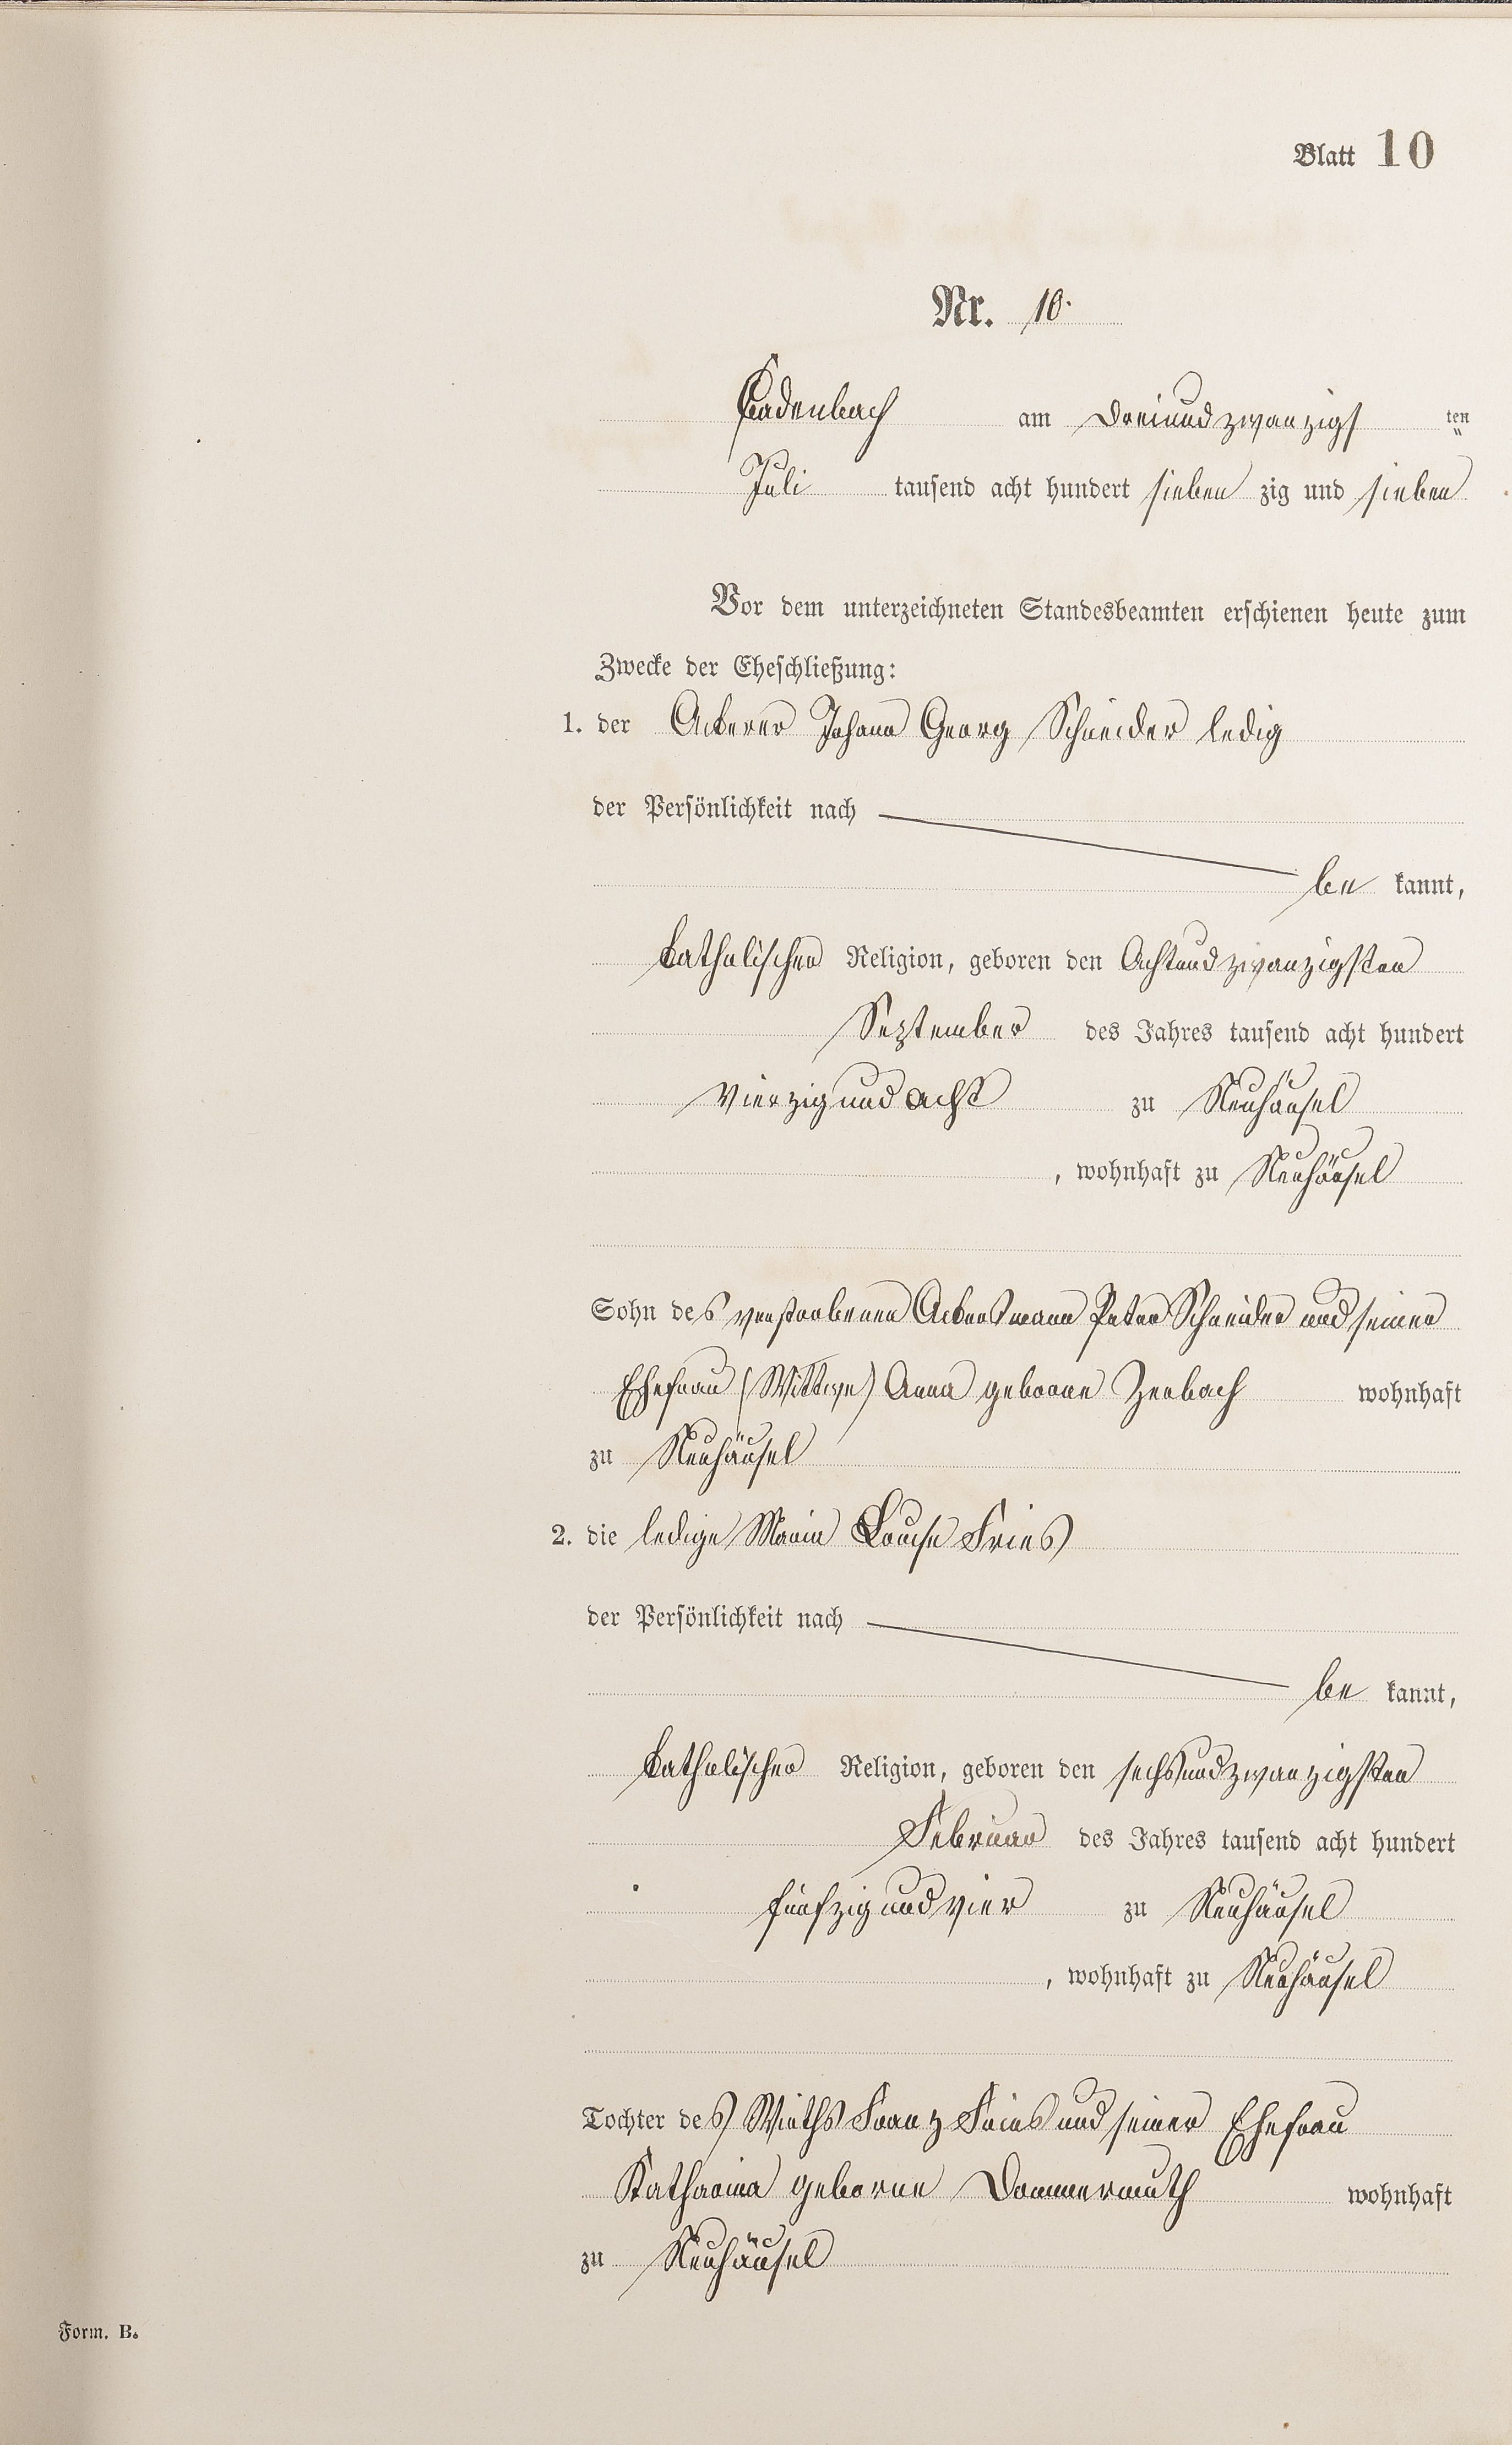 Blatt 10
Nr. 10.
Cadenbach am Dreiundzwanzigs ten
Juli tausend acht hundert sieben zig und sieben
Vor dem unterzeichneten Standesbeamten erschienen heute zum
Zwecke der Eheschließung:
1. der Ackerer Johann Georg Schneider ledig
der Persönlichkeit nach
be kannt,
katholischer Religion, geboren den Achtundzwanzigsten
September des Jahres tausend acht hundert
Vierzig und acht zu Neuhäusel
, wohnhaft zu Neuhäusel
Sohn des verstorbenen Ackersmann Peter Schneider und seiner
Ehefrau (Wittwe) Anna geborne Zerbach wohnhaft
zu Neuhäusel
2. die ledige Maria Louise Fries
der Persönlichkeit nach
be kannt,
katholischer Religion, geboren den sechsundzwanzigsten
Februar des Jahres tausend acht hundert
fünfzig und vier zu Neuhäusel
, wohnhaft zu Neuhäusel
Tochter des Wirths Franz Fries und seiner Ehefrau
Katharina geborne Dommermuth wohnhaft
zu Neuhäusel
Form. B.